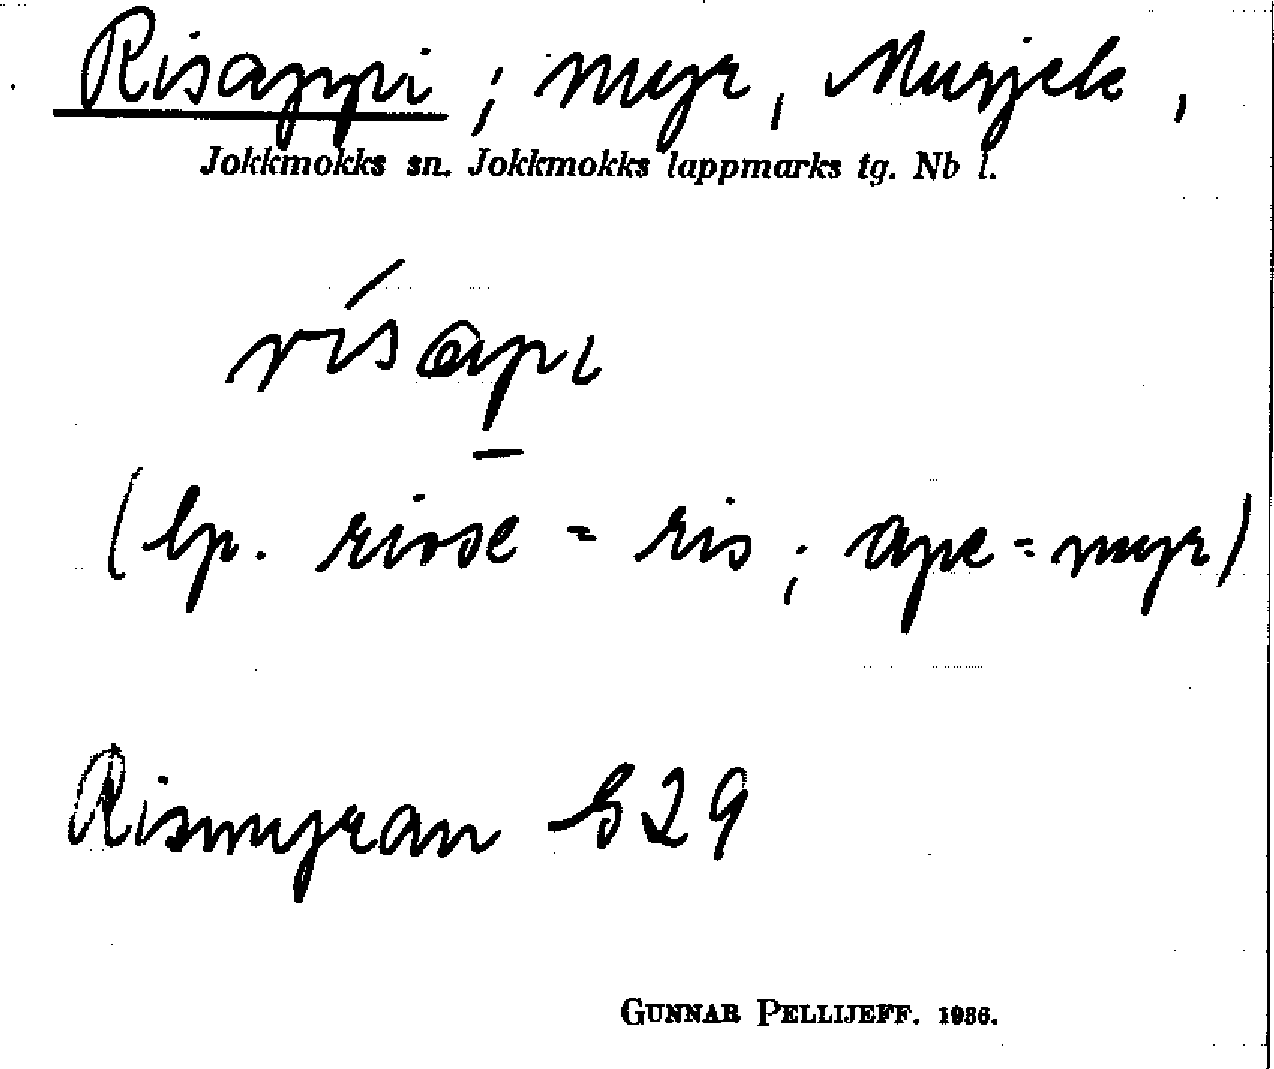 Risappi ; myr , Murjek ,
Jokkmokks sn. Jokkmokks lappmarks tg. Nb l.
rísapi
(lp. risse = ris ; ape = myr)
Rismyran S 29
GUNNAR PELLIJEFF. 1936.